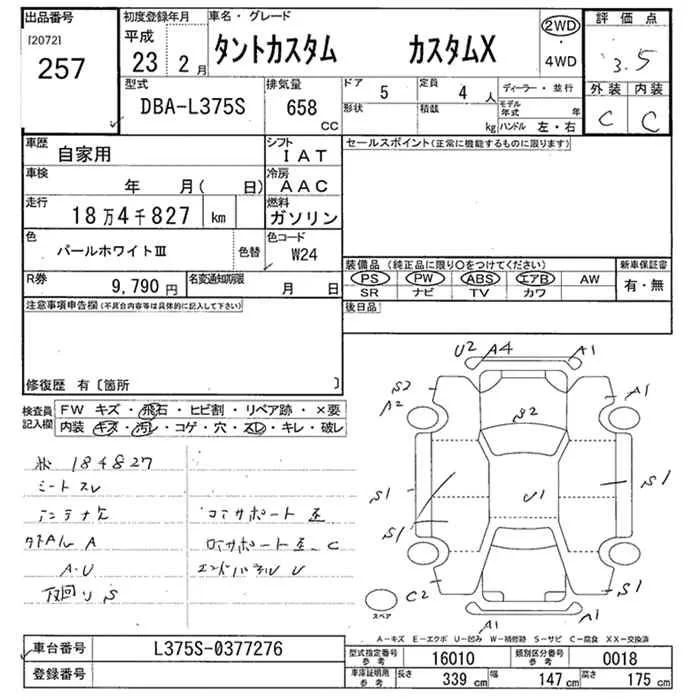 出品番号
[2072]
257
初度登録年月
平成
23 2月
車名・グレード
タントカスタム カスタムX
2WD
・
4WD
評価点
3.5
外装 内装
C C
型式
DBA-L375S
排気量
658
CC
ドア 5
定員 4人
形状
積載 kg
ディーラー・並行
モデル年式 年
ハンドル 左・右
車歴
自家用
シフト
IAT
車検
年 月( 日)
冷房
AAC
走行
18万4千827 km
燃料
ガソリン
色
パールホワイトIII
色替
色コード
W24
R券
9,790円
名変通知期限
月 日
セールスポイント(正常に機能するものに限ります)
装備品(純正品に限り〇をつけてください)
PS PW ABS エアB AW
SR ナビ TV カワ
新車保証書
有・無
後日品
注意事項申告欄(不具合内容等は具体的に記入して下さい)
修復歴 有〔箇所 〕
検査員記入欄
FW キズ・飛石・ヒビ割・リペア跡・×要
内装 キズ・汚レ・コゲ・穴・スレ・キレ・破レ
184827
シートスレ
A
A・U
下回りS
コアサポート
ロアサポート C
エンドパネル U
U2 A4 A1
S2
A2
A1
S2
S1
S1
U1
S1
C2
S1
A1
A1
スペア
A－キズ E－エクボ U－凹み W－補修跡 S－サビ C－腐食 XX－交換済
車台番号
L375S-0377276
登録番号
型式指定番号
参考
16010
類別区分番号
参考
0018
車庫証明用
参考
長さ 339 cm
幅 147 cm
高さ 175 cm